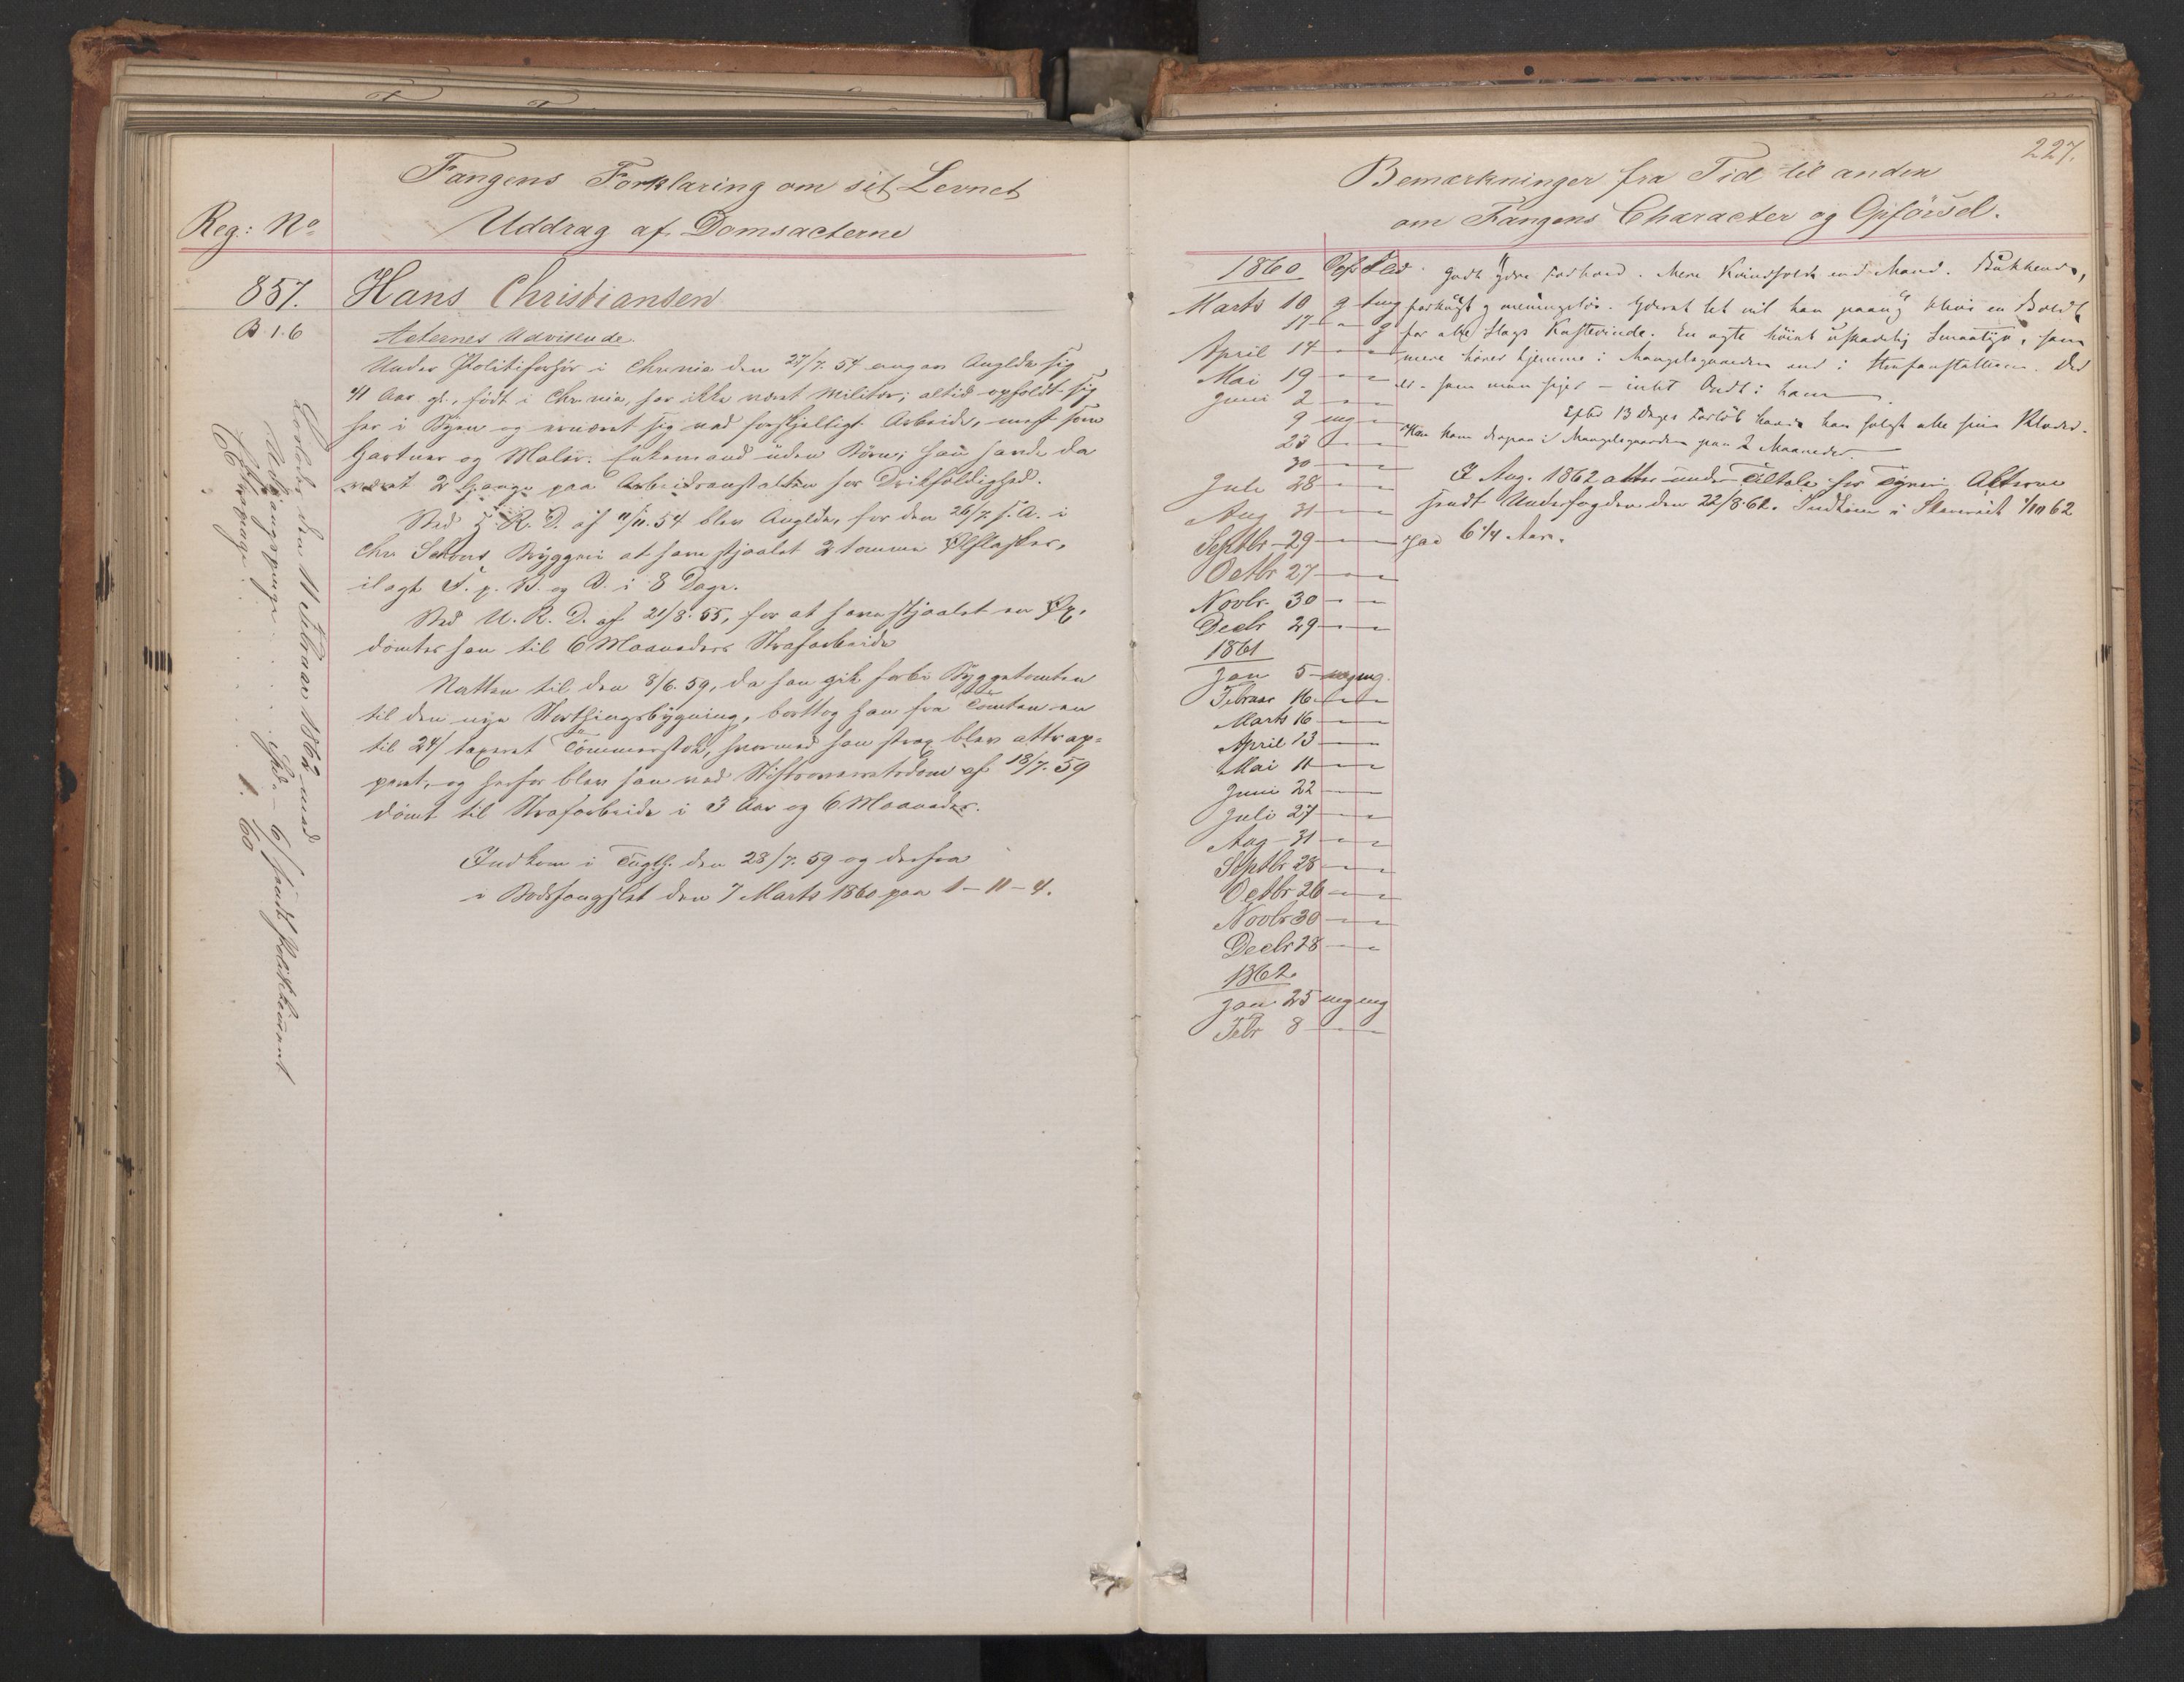 Fangens Forklaring om sit Levnet
Reg: No Uddrag af Domsacterne
857. Hans Christiansen
B. 1. 6
Acternes Udvisende.
Under Politiforhör i Chrnia den 27/7. 54 angav Anglde sig
41 Aar gl., födt i Chrnia, har ikke været Militær; altid opholdt sig
her i Byen og ernæret sig ved forskjelligt Arbeide, mest som
Gartner og Maler. Enkemand uden Börn; han havde da
været 2 Gange paa Arbeidsanstalten for Drikfældighed.
Ved R. D. af 11/11. 54 blev Anglde, for den 26/7 s. A. i
Chr Schous Bryggeri at have stjaalet 2 tomme Ölflasker,
ilagt F. p. V. og B. i 8 Dage.
Ved U. R. D. af 21/8. 55, for at have stjaalet en Öx,
dömtes han til 6 Maaneders Strafarbeide
Natten til den 8/6. 59, da han gik forbi Byggetomten
til den nye Storthingsbygning, borttog han fra Tomten en
til 24/ taxeret Tömmerstok, hvormed han strax blev attrap-
peret, og herfor blev han ved Stiftsoverretsdom af 18/7. 59
dömt til Strafarbeide i 3 Aar og 6 Maaneder.
Indkom i Tugth. den 28/7. 59 og derfra
i Bodsfængslet den 7 Marts 1860 paa 1 – 11 – 4.
Löslades den 11 Februar 1862 med
Udgangspenge . . . Spd. – 6/ sendt Politikammeret
Eftergage . . . . 1. 60
227.
Bemærkninger fra Tid til anden
om Fangens Character og Opförsel.
1860 Opf Flid
Marts 10 g tmg
17 – " g
April 14 – " –
Mai 19 – " –
Juni 2 – " –
9 mg –
23 – " –
30 – " –
Juli 28 – " –
Aug 31 – " –
Septbr – 29 – " –
Octbr 27 – " –
Novbr. 30 – " –
Decbr 29 – " –
1861
Jan 5 mg mg.
Februar 16 – " –
Marts 16 – " –
April 13 – " –
Mai 11 – " –
Juni 22 – " –
Juli 27 – " –
Aug – 31 – " –
Septbr 28 – " –
Octbr 26 – " –
Novbr 30 – " –
Decbr 28 – " –
1862.
Jan 25 mg mg
Febr 8 – " –
Godt ydre Forhold. Mere Kvindfolk end Mand. Bukkende,
forknyt og meningslös. Yderst let vil han paany blive en Boldt
for alle Slags Kastevinde. En ægte höist uskadelig Smaatyv, som
mere hörer hjemme i Mangelsgaarden end i Strafanstalten. Der
er – som man siger – intet Ondt i ham.
Efter 13 Dages Forlöb havde han solgt alle sine Klæder.
Han kom derpaa i Mangelsgaarden paa 2 Maaneder.
Aug. 1862 atter under Tiltale for Tyveri. Akterne
sendt Underfogden den 22/8. 62. Indkom i Slaveriet 1/10 62
paa 6 1/4 Aar.